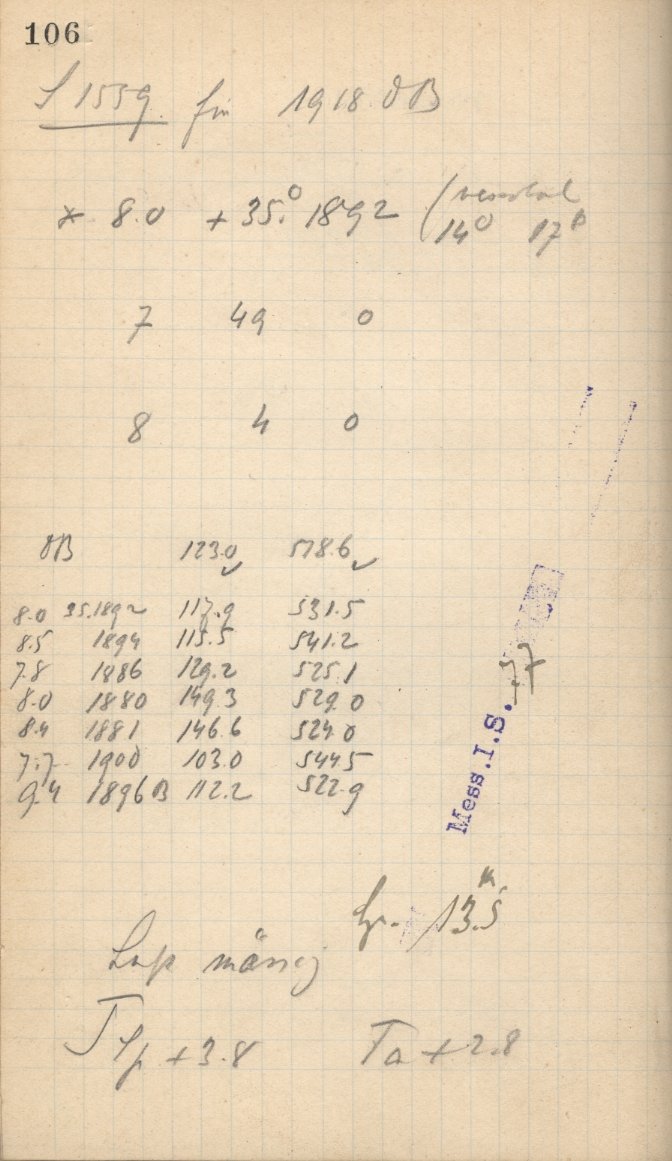 106
S 1559. für 1918 DB
* 8.0 + 35.° 1892
14° 17
7 49 0
8 4 0
DB 123.0 ✓ 518.6 ✓
8.0 35.1892 117.9 531.5
8.5 1894 115.5 541.2
7.8 1886 129.2 525.1
8.0 1880 149.3 529.0
8.4 1881 146.6 524.0
7.7 1900 103.0 544.5
9.4 1896 B 112.2 522.9
Mess.I.S. 77
Gr. 13.5
Luft mässig
Sp + 3.8 Ta + 2.8